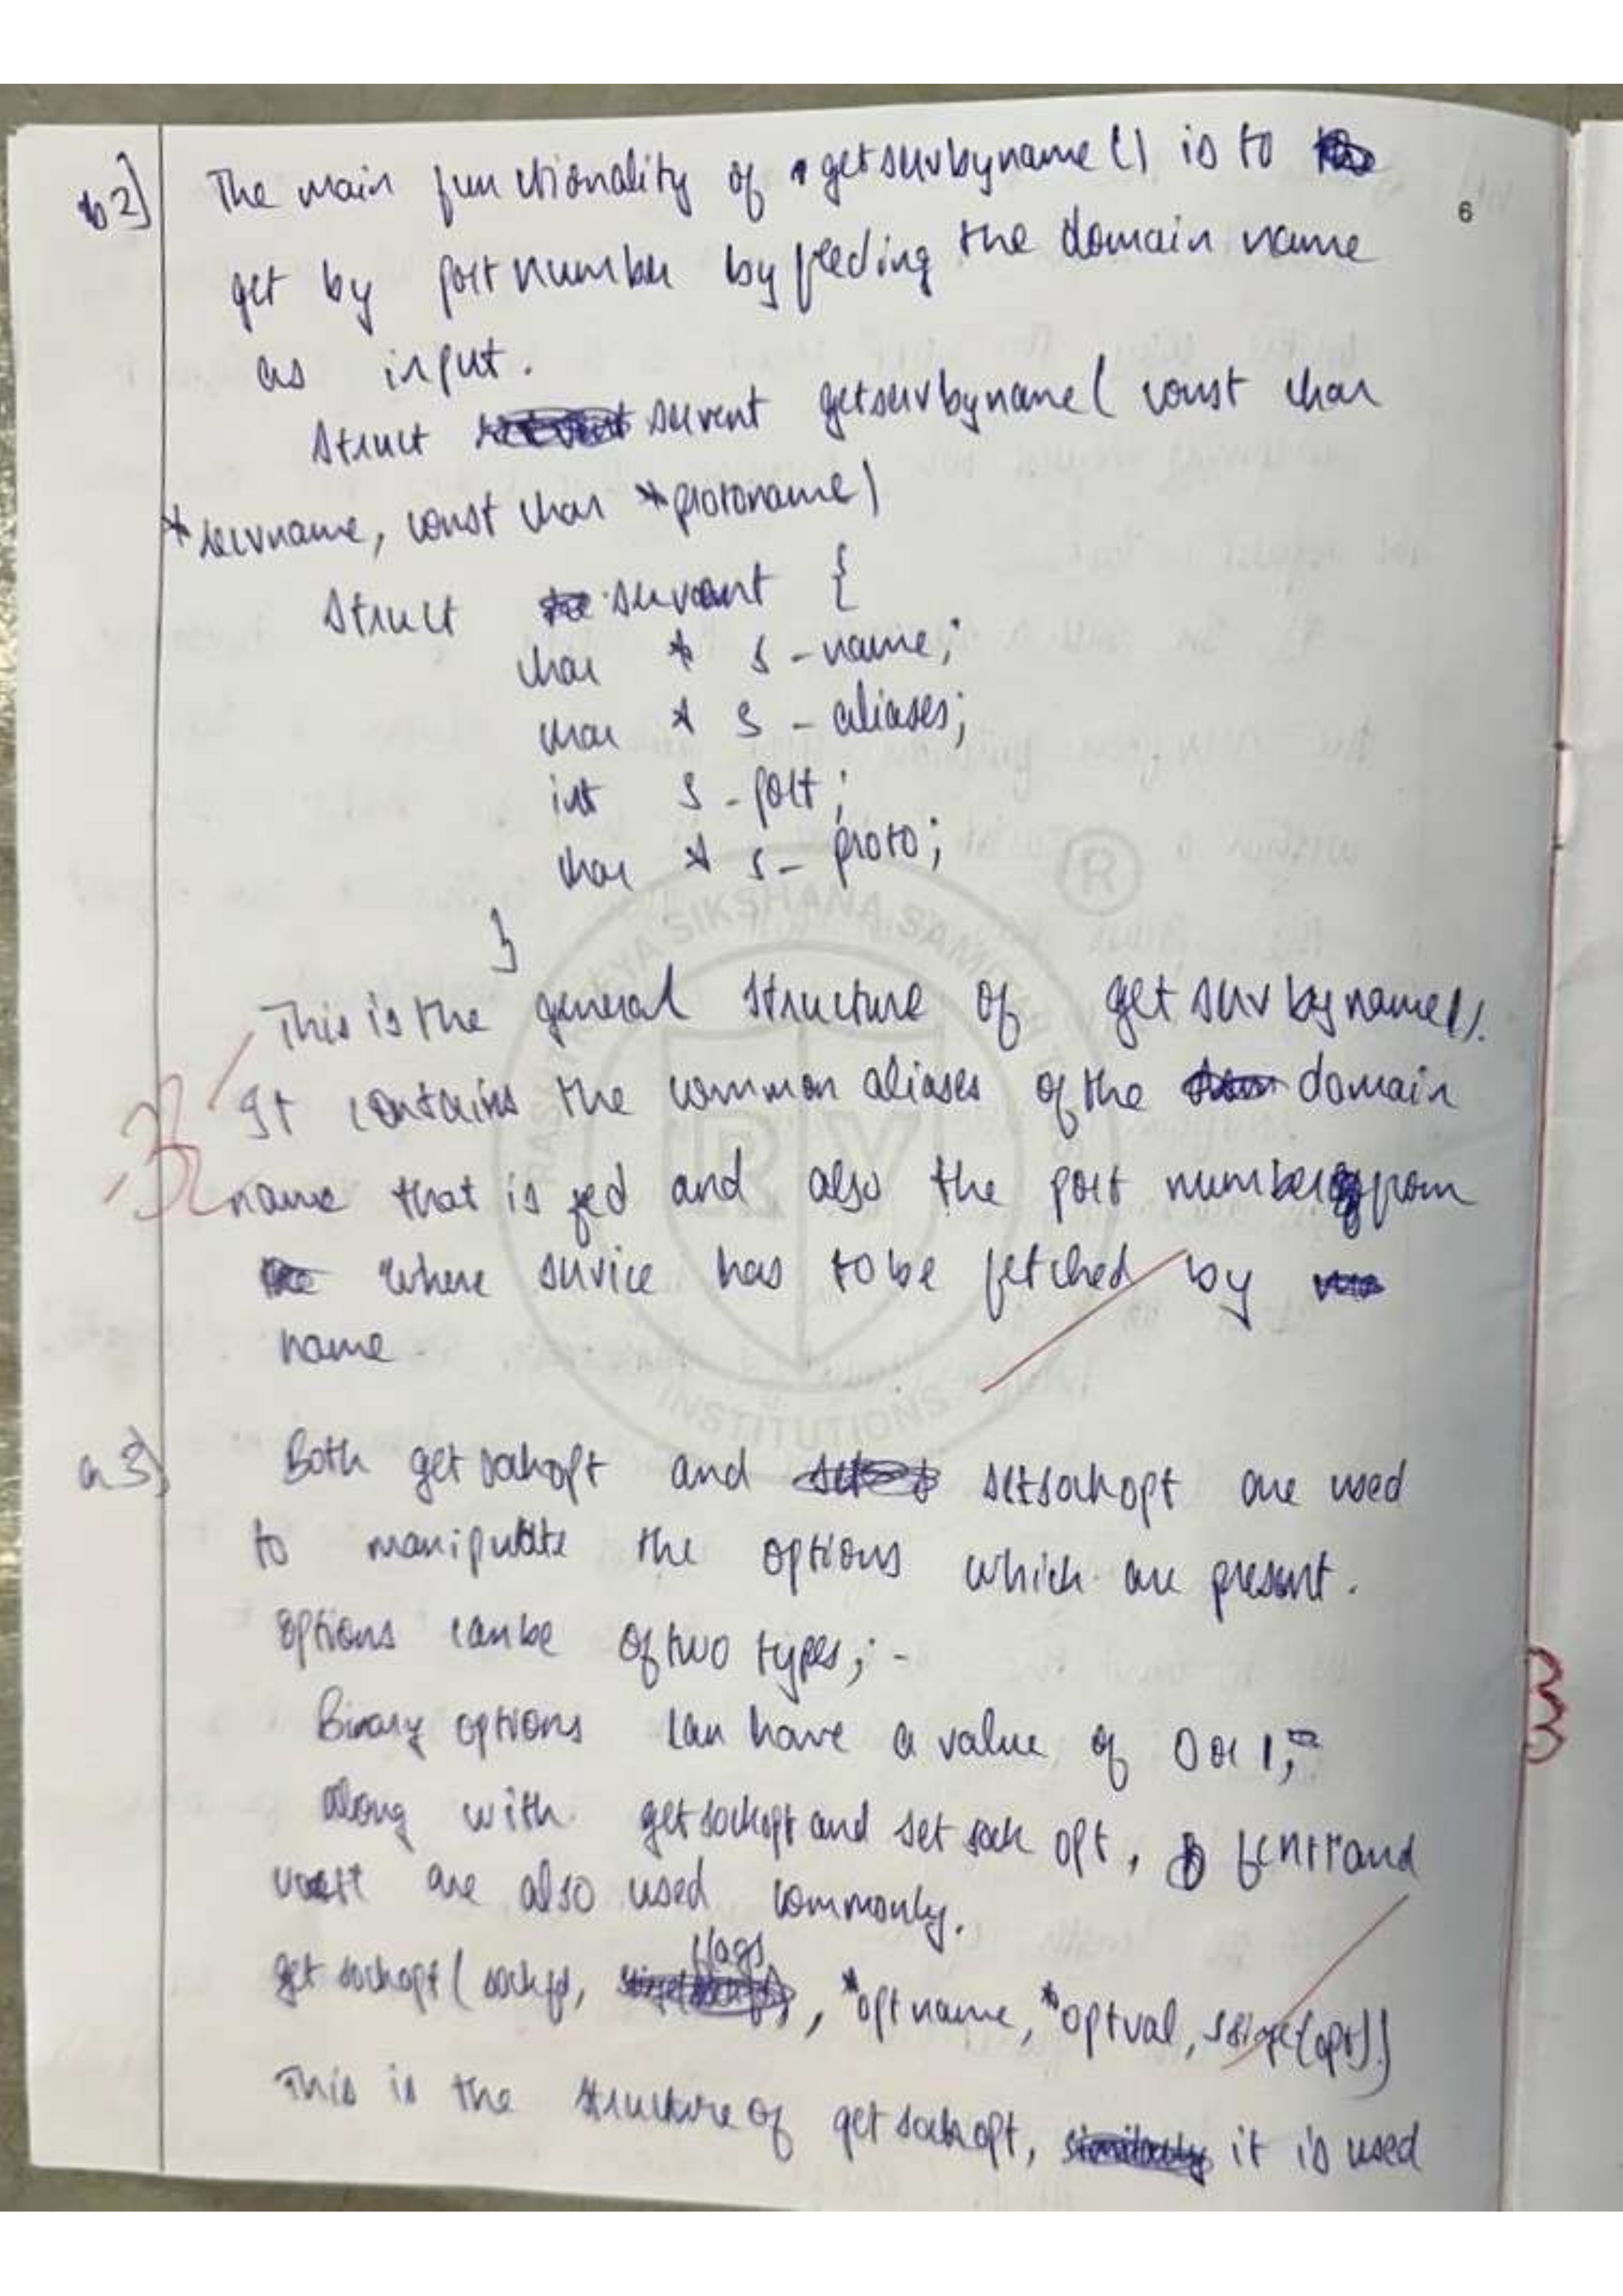 6
b2] The main functionality of getservbyname() is to
get by port number by feeding the domain name
as input.
struct servent getservbyname( const char
*servname, const char *protoname)
struct servent {
char * s-name;
char * s-aliases;
int s-port;
char * s-proto;
}
This is the general structure of getservbyname().
It contains the common aliases of the domain
name that is fed and also the port number from
where service has to be fetched by
name.
a3) Both getsockopt and setsockopt are used
to manipulate the options which are present.
options can be of two types;-
Binary options can have a value of 0 or 1;
Along with getsockopt and setsockopt, fcntl and
are also used commonly.
getsockopt( sockfd, flags, *optname, *optval, (opt))
This is the structure of getsockopt, it is used
R
RASHTREEYA SIKSHANA SAMITHI TRUST
RV
INSTITUTIONS